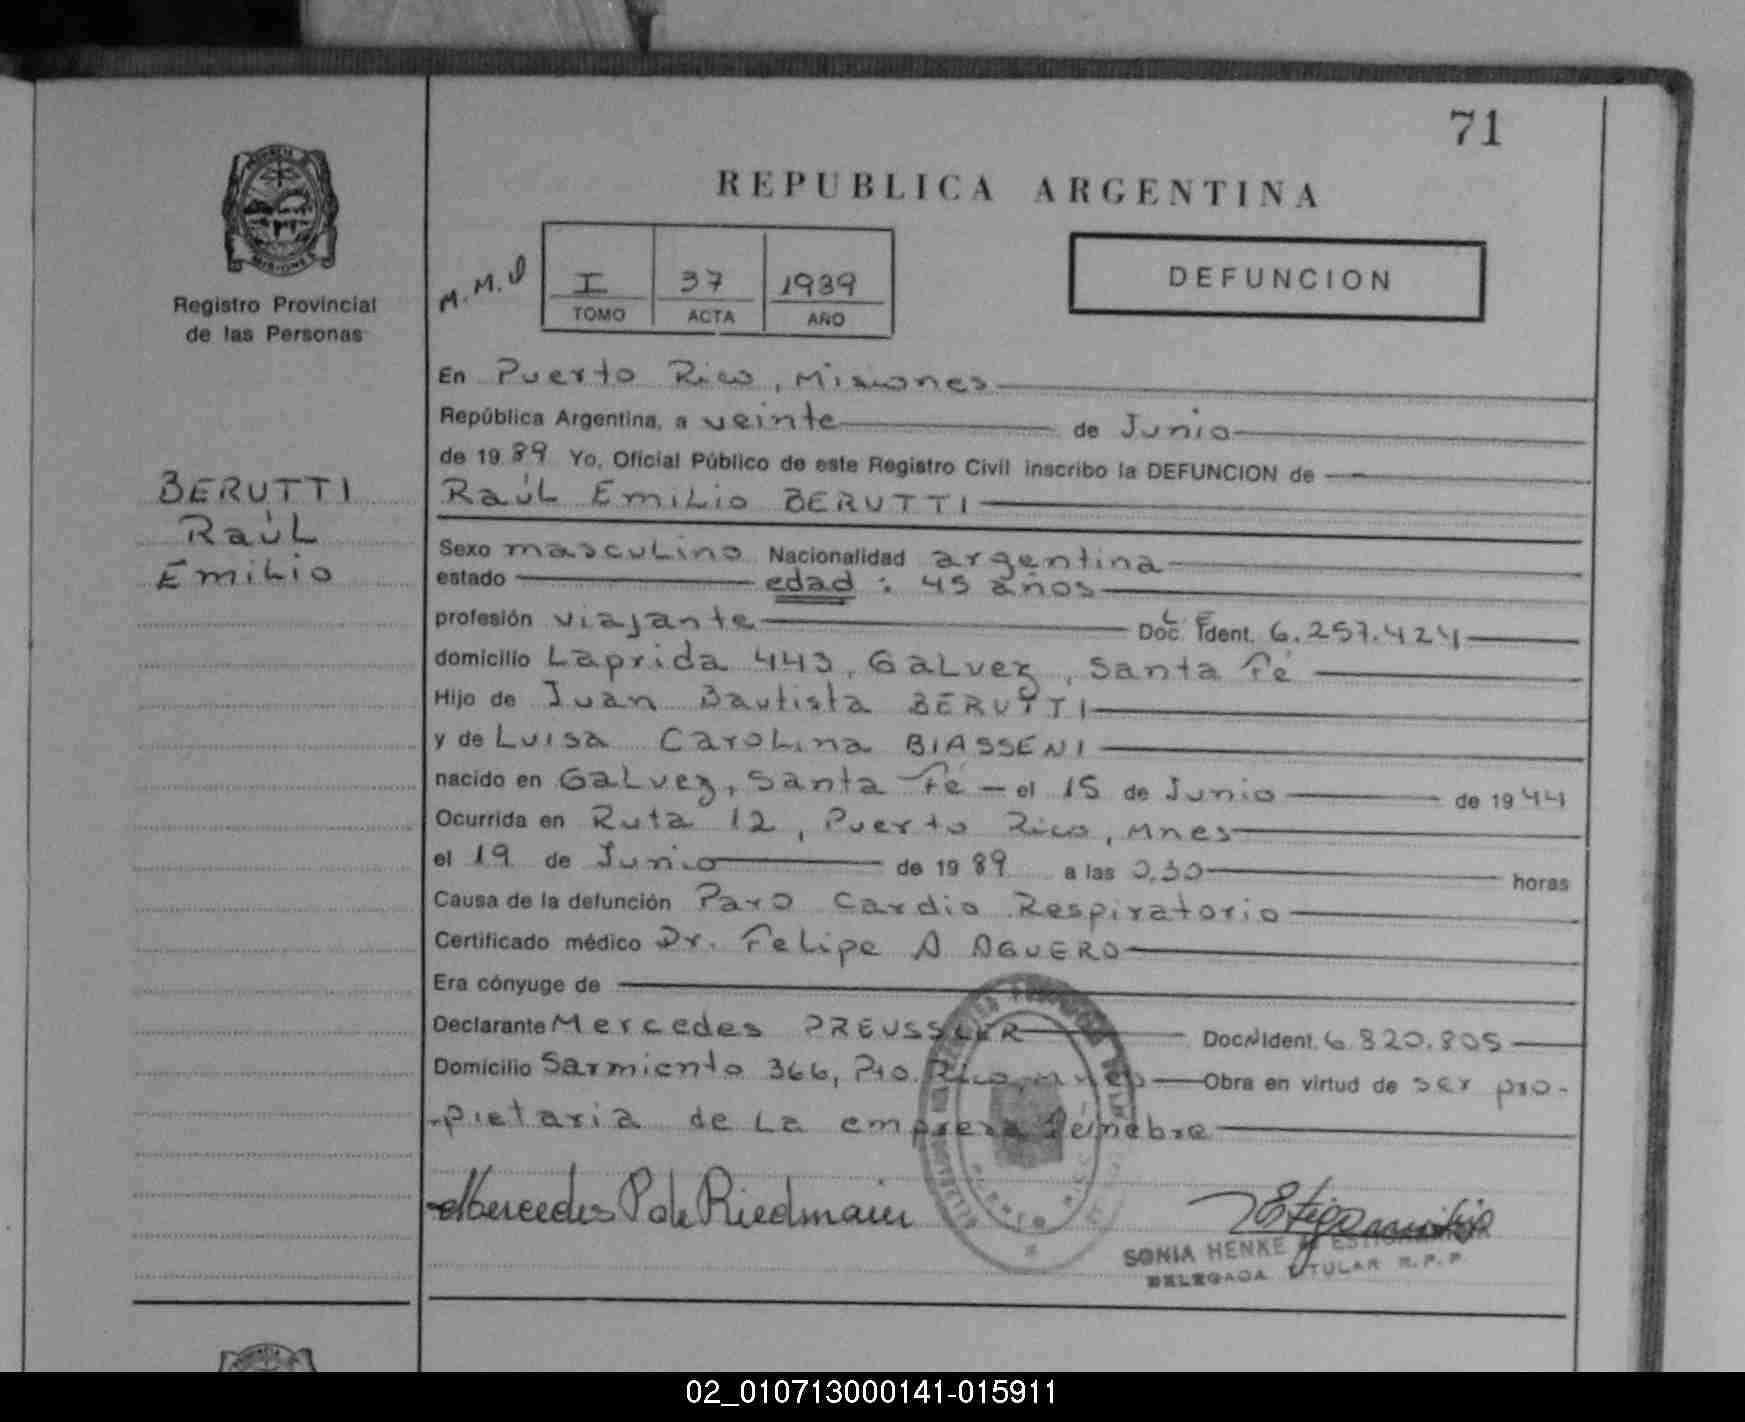 71
REPUBLICA ARGENTINA
PROVINCIA DE
MISIONES
Registro Provincial
de las Personas
M.M.D
I 37 1939
TOMO ACTA AÑO
DEFUNCION
En Puerto Rico, Misiones
República Argentina, a veinte de Junio
de 1989 Yo, Oficial Público de este Registro Civil inscribo la DEFUNCION de
Raúl Emilio BERUTTI
BERUTTI
Raúl
Emilio
Sexo masculino Nacionalidad argentina
estado edad : 45 años
profesión viajante Doc. Ident. L E 6.257.424
domicilio Laprida 443, Galvez, Santa Fé
Hijo de Juan Bautista BERUTTI
y de Luisa Carolina BIASSENI
nacido en Galvez, Santa Fé - el 15 de Junio de 1944
Ocurrida en Ruta 12, Puerto Rico, Mnes
el 19 de Junio de 1989 a las 0,30 horas
Causa de la defunción Paro Cardio Respiratorio
Certificado médico Dr. Felipe A AGUERO
Era cónyuge de
Declarante Mercedes PREUSSLER Doc. Ident. 6.820.805
Domicilio Sarmiento 366, Pto. Rico, Mnes Obra en virtud de ser pro-
-pietaria de la empresa fúnebre
Mercedes P de Riedmaier
SONIA HENKE
DELEGADA TITULAR R.P.P.
02_010713000141-015911